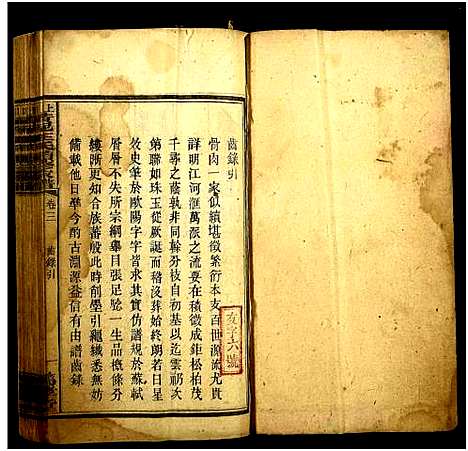 齒錄引
骨肉一家似續堪徵繁衍本支百世源流尤貴
詳明江河滙萬派之流要在積微成鉅松柏茂
千尋之蔭孰非同幹分枝自初基以迄雲礽次
第聯如珠玉從厥誕而稽沒葬始終朗若日星
效史筆於歐陽字字皆求其實仿譜規於蘇軾
層層不失所宗綱舉目張足騐一生品槪條分
縷晰更知合族蕃殷此時削墨引繩纎悉無妨
備載他日學今酌古淵源益信有由譜齒錄
友字六號
卷三
齒錄引